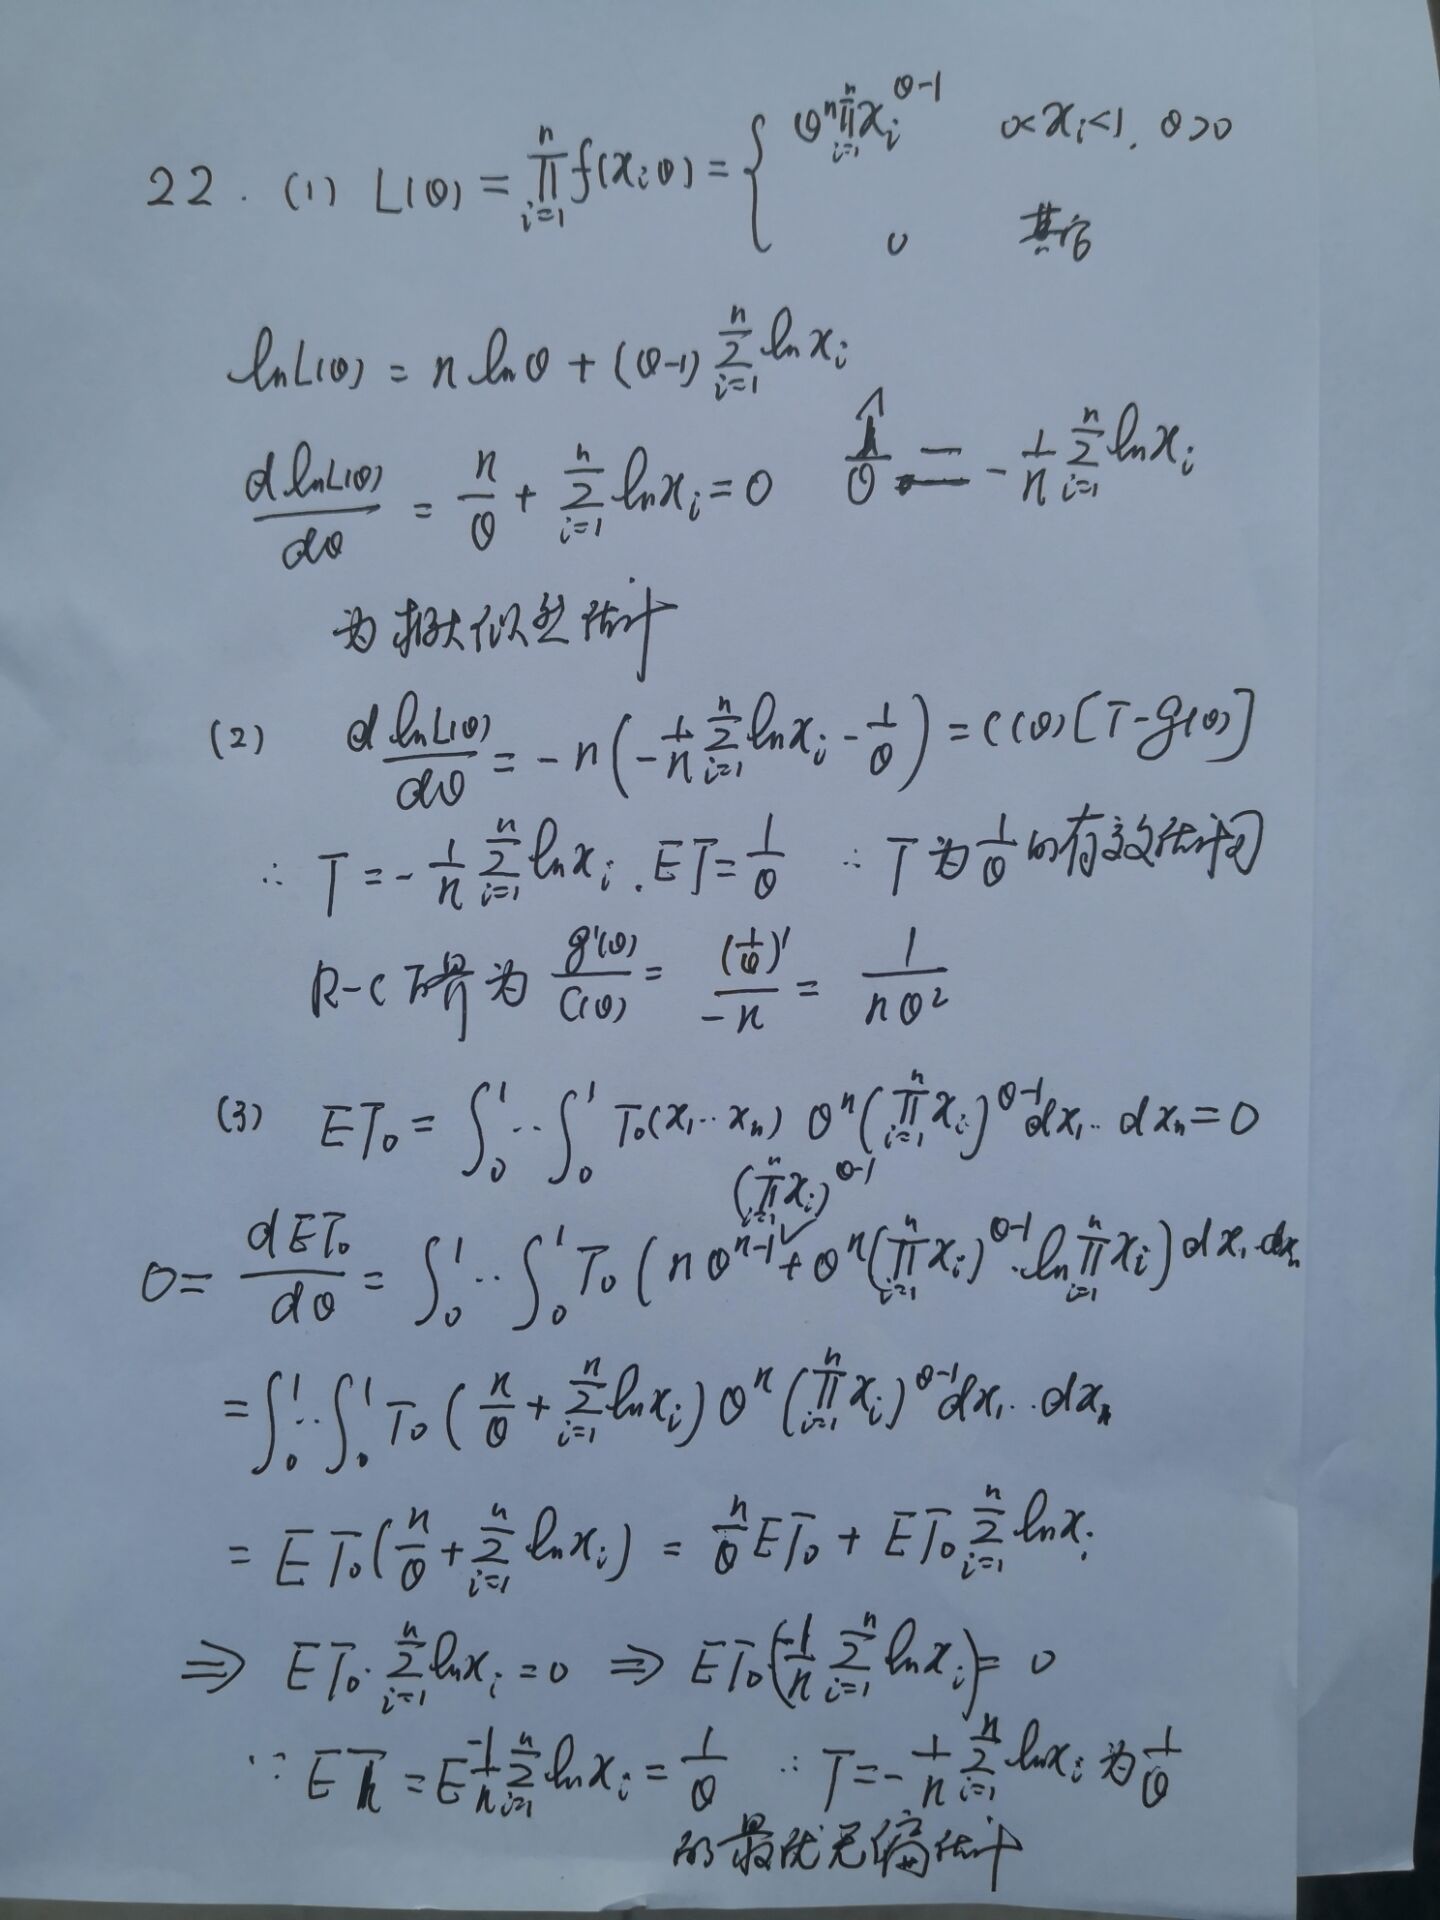 22. (1) L(θ) = ∏_{i=1}^{n} f(x_i θ) = { θ^n ∏_{i=1}^{n} x_i^{θ-1}  0<x_i<1, θ>0
0  其它
lnL(θ) = n lnθ + (θ-1) ∑_{i=1}^{n} ln x_i
d lnL(θ)/dθ = n/θ + ∑_{i=1}^{n} ln x_i = 0  \hat{1/θ} = -1/n ∑_{i=1}^{n} ln x_i
为极大似然估计
(2) d lnL(θ)/dθ = -n(-1/n ∑_{i=1}^{n} ln x_i - 1/θ) = C(θ)[T-g(θ)]
∴ T = -1/n ∑_{i=1}^{n} ln x_i . ET = 1/θ ∴ T 为 1/θ 的有效估计
R-C 下界为 g'(θ)/C(θ) = (1/θ)'/-n = 1/nθ²
(3) ET₀ = ∫₀¹ ·· ∫₀¹ T₀(x₁ ·· x_n) θ^n (∏_{i=1}^{n} x_i)^{θ-1} dx₁ ·· dx_n = 0
0 = dET₀/dθ = ∫₀¹ ·· ∫₀¹ T₀ (nθ^{n-1} (∏_{i=1}^{n} x_i)^{θ-1} + θ^n (∏_{i=1}^{n} x_i)^{θ-1} · ln ∏_{i=1}^{n} x_i) dx₁ dx_n
= ∫₀¹ ·· ∫₀¹ T₀ (n/θ + ∑_{i=1}^{n} ln x_i) θ^n (∏_{i=1}^{n} x_i)^{θ-1} dx₁ ·· dx_n
= ET₀(n/θ + ∑_{i=1}^{n} ln x_i) = n/θ ET₀ + ET₀ ∑_{i=1}^{n} ln x_i
⇒ ET₀ · ∑_{i=1}^{n} ln x_i = 0 ⇒ ET₀(-1/n ∑_{i=1}^{n} ln x_i) = 0
∵ ET = E -1/n ∑_{i=1}^{n} ln x_i = 1/θ ∴ T = -1/n ∑_{i=1}^{n} ln x_i 为 1/θ
的最优无偏估计